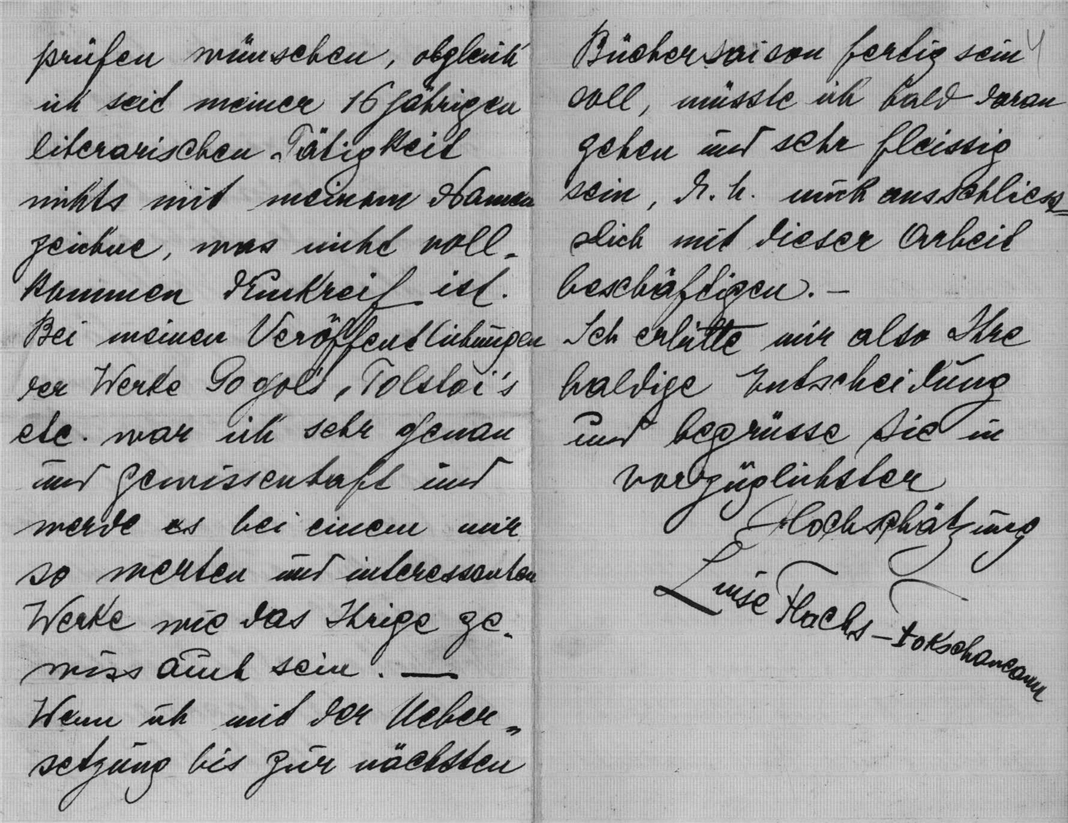 prüfen wünschen, obgleich
ich seit meiner 16 jährigen
literarischen Tätigkeit
nichts mit meinem Namen
zeichne, was nicht voll-
kommen druckreif ist.
Bei meinen Veröffentlichungen
der Werke Gogols, Tolstoi's
etc. war ich sehr genau
und gewissenhaft und
werde es bei einem mir
so werten und interessanten
Werke wie das Ihrige ge-
wiss auch sein. —
Wenn ich mit der Ueber-
setzung bis zur nächsten
4
Büchersaison fertig sein
soll, müsste ich bald daran
gehen und sehr fleissig
sein, d. h. mich ausschliess=
slich mit dieser Arbeit
beschäftigen. —
Ich erbitte mir also Ihre
baldige Entscheidung
und begrüsse Sie in
vorzüglichster
Hochschätzung
Luise Flachs-Fokschaneanu